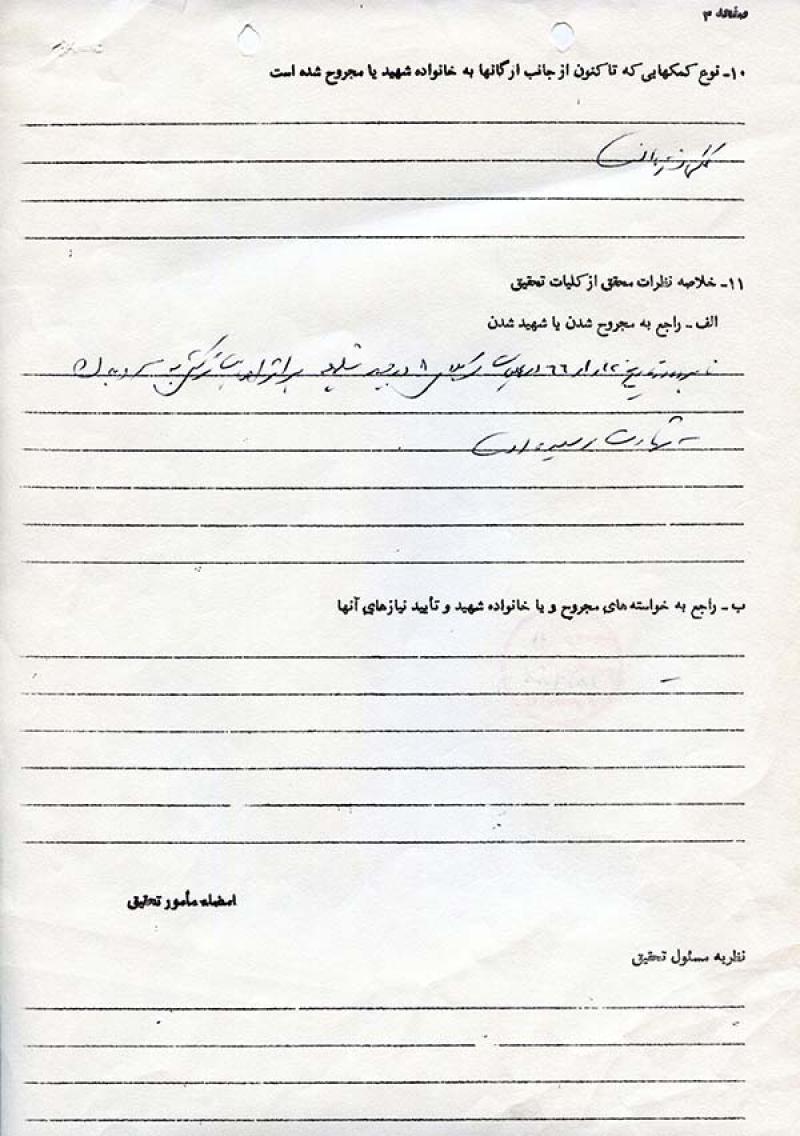 صفحه ۳
۱۰- نوع کمکهایی که تا کنون از جانب ارگانها به خانواده شهید یا مجروح شده است
۱۱- خلاصه نظرات محقق از کلیات تحقیق
الف - راجع به مجروح شدن یا شهید شدن
نامبرده در تاریخ ۱۲ر۱ر۶۶ در عملیات کربلای ۸ در جبهه شلمچه بر اثر اصابت ترکش به سر و
به شهادت رسیده است
ب - راجع به خواسته های مجروح و یا خانواده شهید و تأیید نیازهای آنها
-
امضاء مأمور تحقیق
نظریه مسئول تحقیق